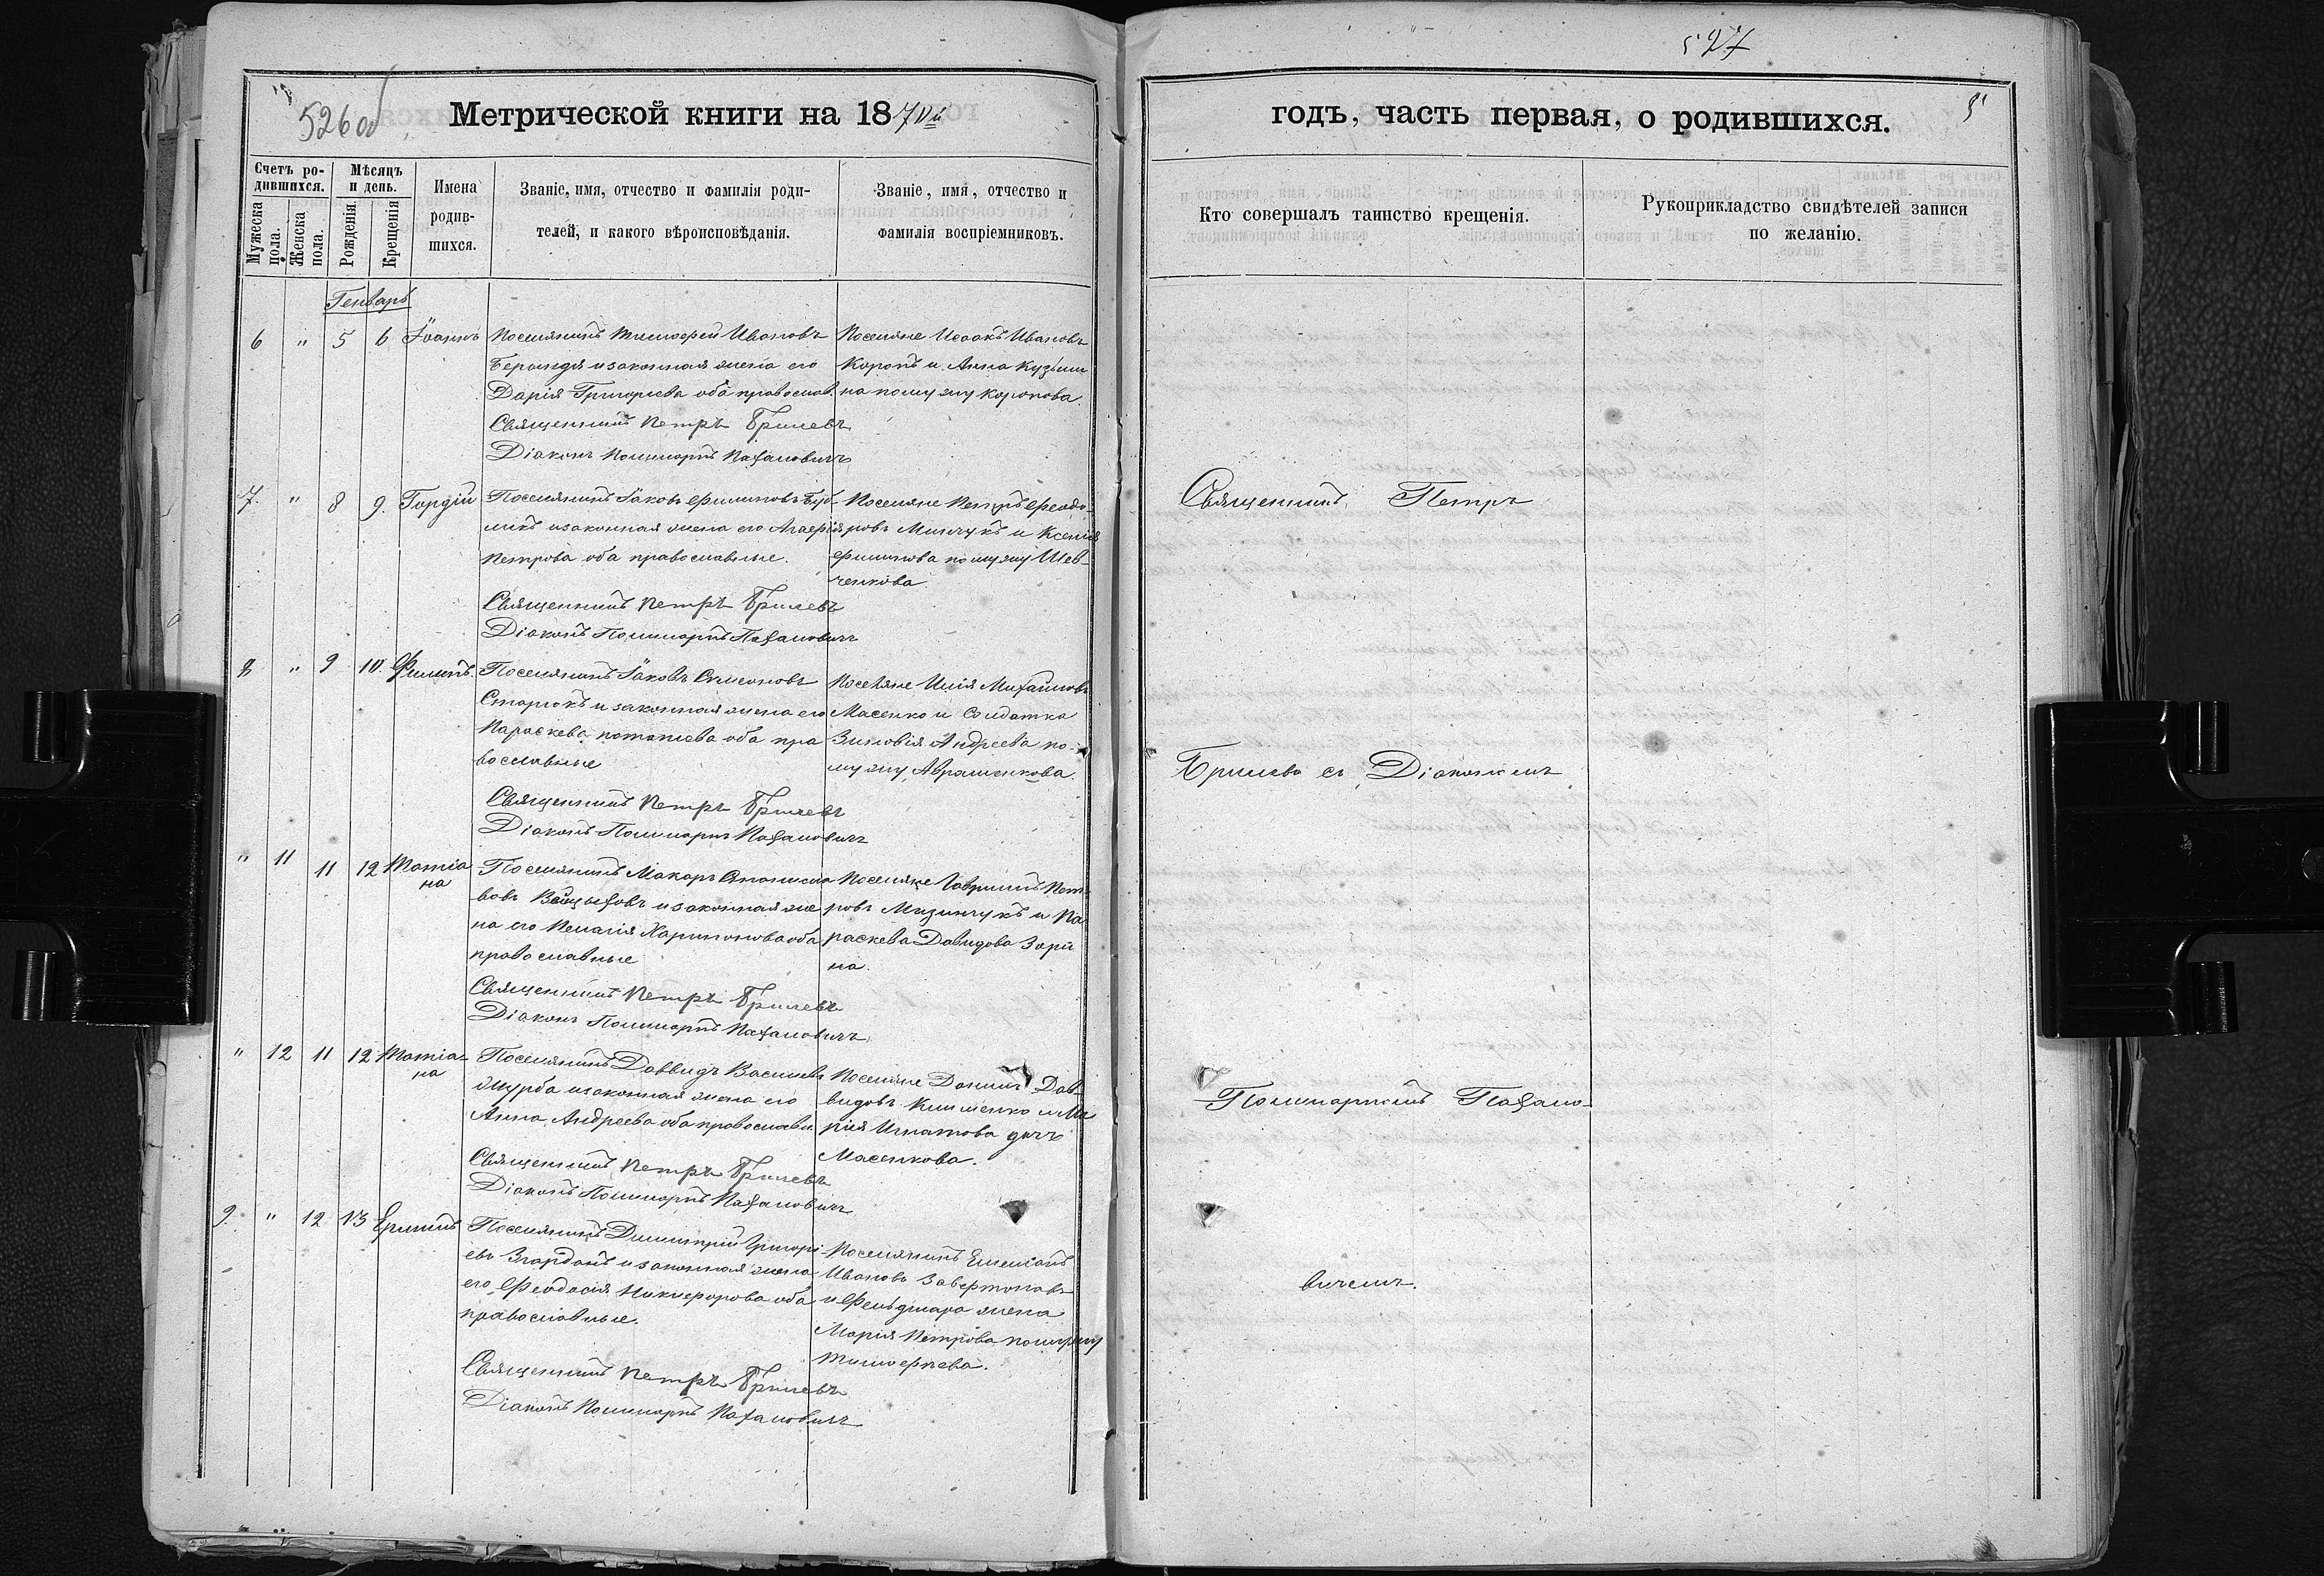 526 об
Метрической книги на 1870й
Счетъ ро-
дившихся.
Мужеска
пола.
Женска
пола.
Мѣсяцъ
и день.
Рожденія.
Крещенія
Имена
родив-
шихся.
Званіе, имя, отчество и фамилія роди-
телей, и какого вѣроисповѣданія.
Званіе, имя, отчество и
фамилія воспріемниковъ.
Генварь
6 " 5 6 Іоаннъ
Поселянинъ Тимофей Ивановъ
и законная жена его
Дарія Григорьева оба православ.
Священникъ Петръ Брилевъ
Діаконъ Поликарпъ Пахаловичъ
Поселяне Исаакъ Ивановъ
Коропъ и Анна Кузьми
на по мужу Коропова.
7. " 8 9. Гордій
Поселянинъ Іаковъ Филиповъ Буб-
ликъ и законная жена его Агафія
Петрова оба православные.
Священникъ Петръ Брилевъ
Діаконъ Поликарпъ Пахаловичъ
Поселяне Петръ Феодо-
ровъ Минчукъ и Ксенія
Филипова по мужу Шев-
ченкова.
8 " 9 10. Филипъ.
Поселянинъ Іаковъ Симеоновъ
и законная жена его
Параскева Потапіева оба пра
вославные
Священникъ Петръ Брилевъ
Діаконъ Поликарпъ Пахаловичъ
Поселяне Илія Михайловъ
Масенко и Солдатка
Зиновія Андреева по-
мужу Аврашенкова.
" 11 11 12 Татіа
на
Поселянинъ Макаръ
и законная же
на его Пелагія Харитонова оба
православные
Священникъ Петръ Брилевъ
Діаконъ Поликарпъ Пахаловичъ
Поселяне Гавріилъ Пет-
ровъ Мизинчукъ и Па
раскева Давидова Зори
на.
" 12 11 12 Татіа-
на
Поселянинъ Даввидъ Васильевъ
и законная жена его
Анна Андреева оба православн.
Священникъ Петръ Брилевъ
Діаконъ Поликарпъ Пахаловичъ
Поселяне Даніилъ Дав-
видовъ Клименко и Ма
рія Игнатова дочь
Масенкова.
9. " 12 13 Ермилъ
Поселянинъ Димитрій Григорі
евъ и законная жена
его Феодосія Никифорова оба
православные.
Священникъ Петръ Брилевъ
Діаконъ Поликарпъ Пахаловичъ
Поселянинъ Емеліанъ
Ивановъ
и Фельдшара жена
Марія Петрова по мужу
Тимофеева.
527
годъ, часть первая, о родившихся.
Кто совершалъ таинство крещенія.
Рукоприкладство свидѣтелей записи
по желанію.
Священникъ Петръ
Брилевъ съ Діакономъ
Поликарпомъ Пахало-
вичемъ.